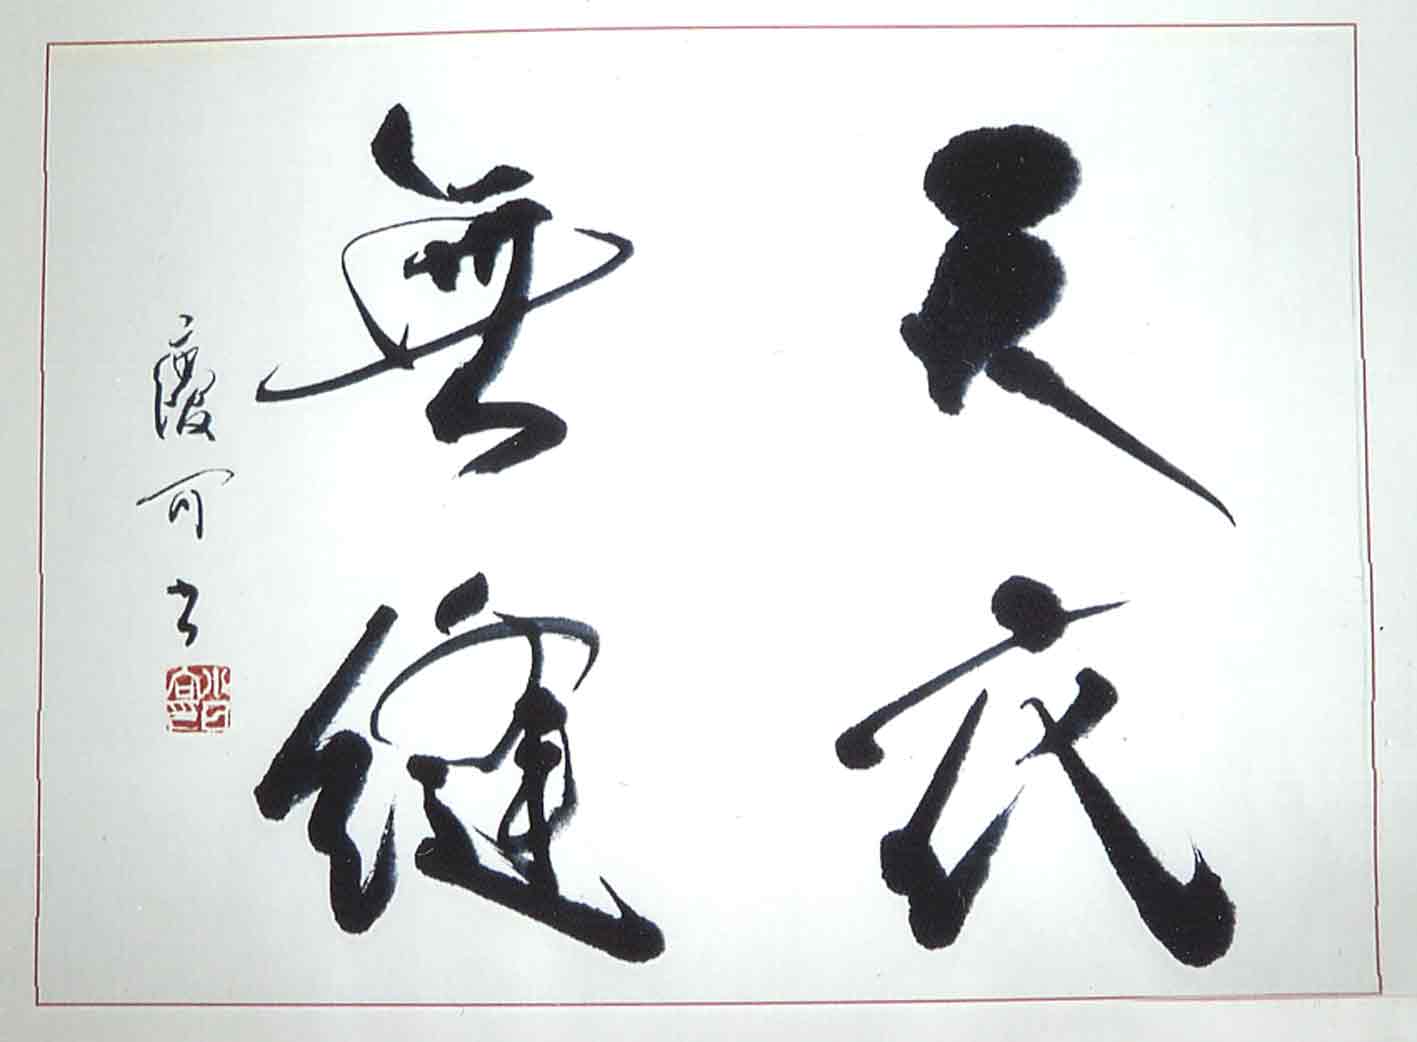 天衣
無縫
霞可书